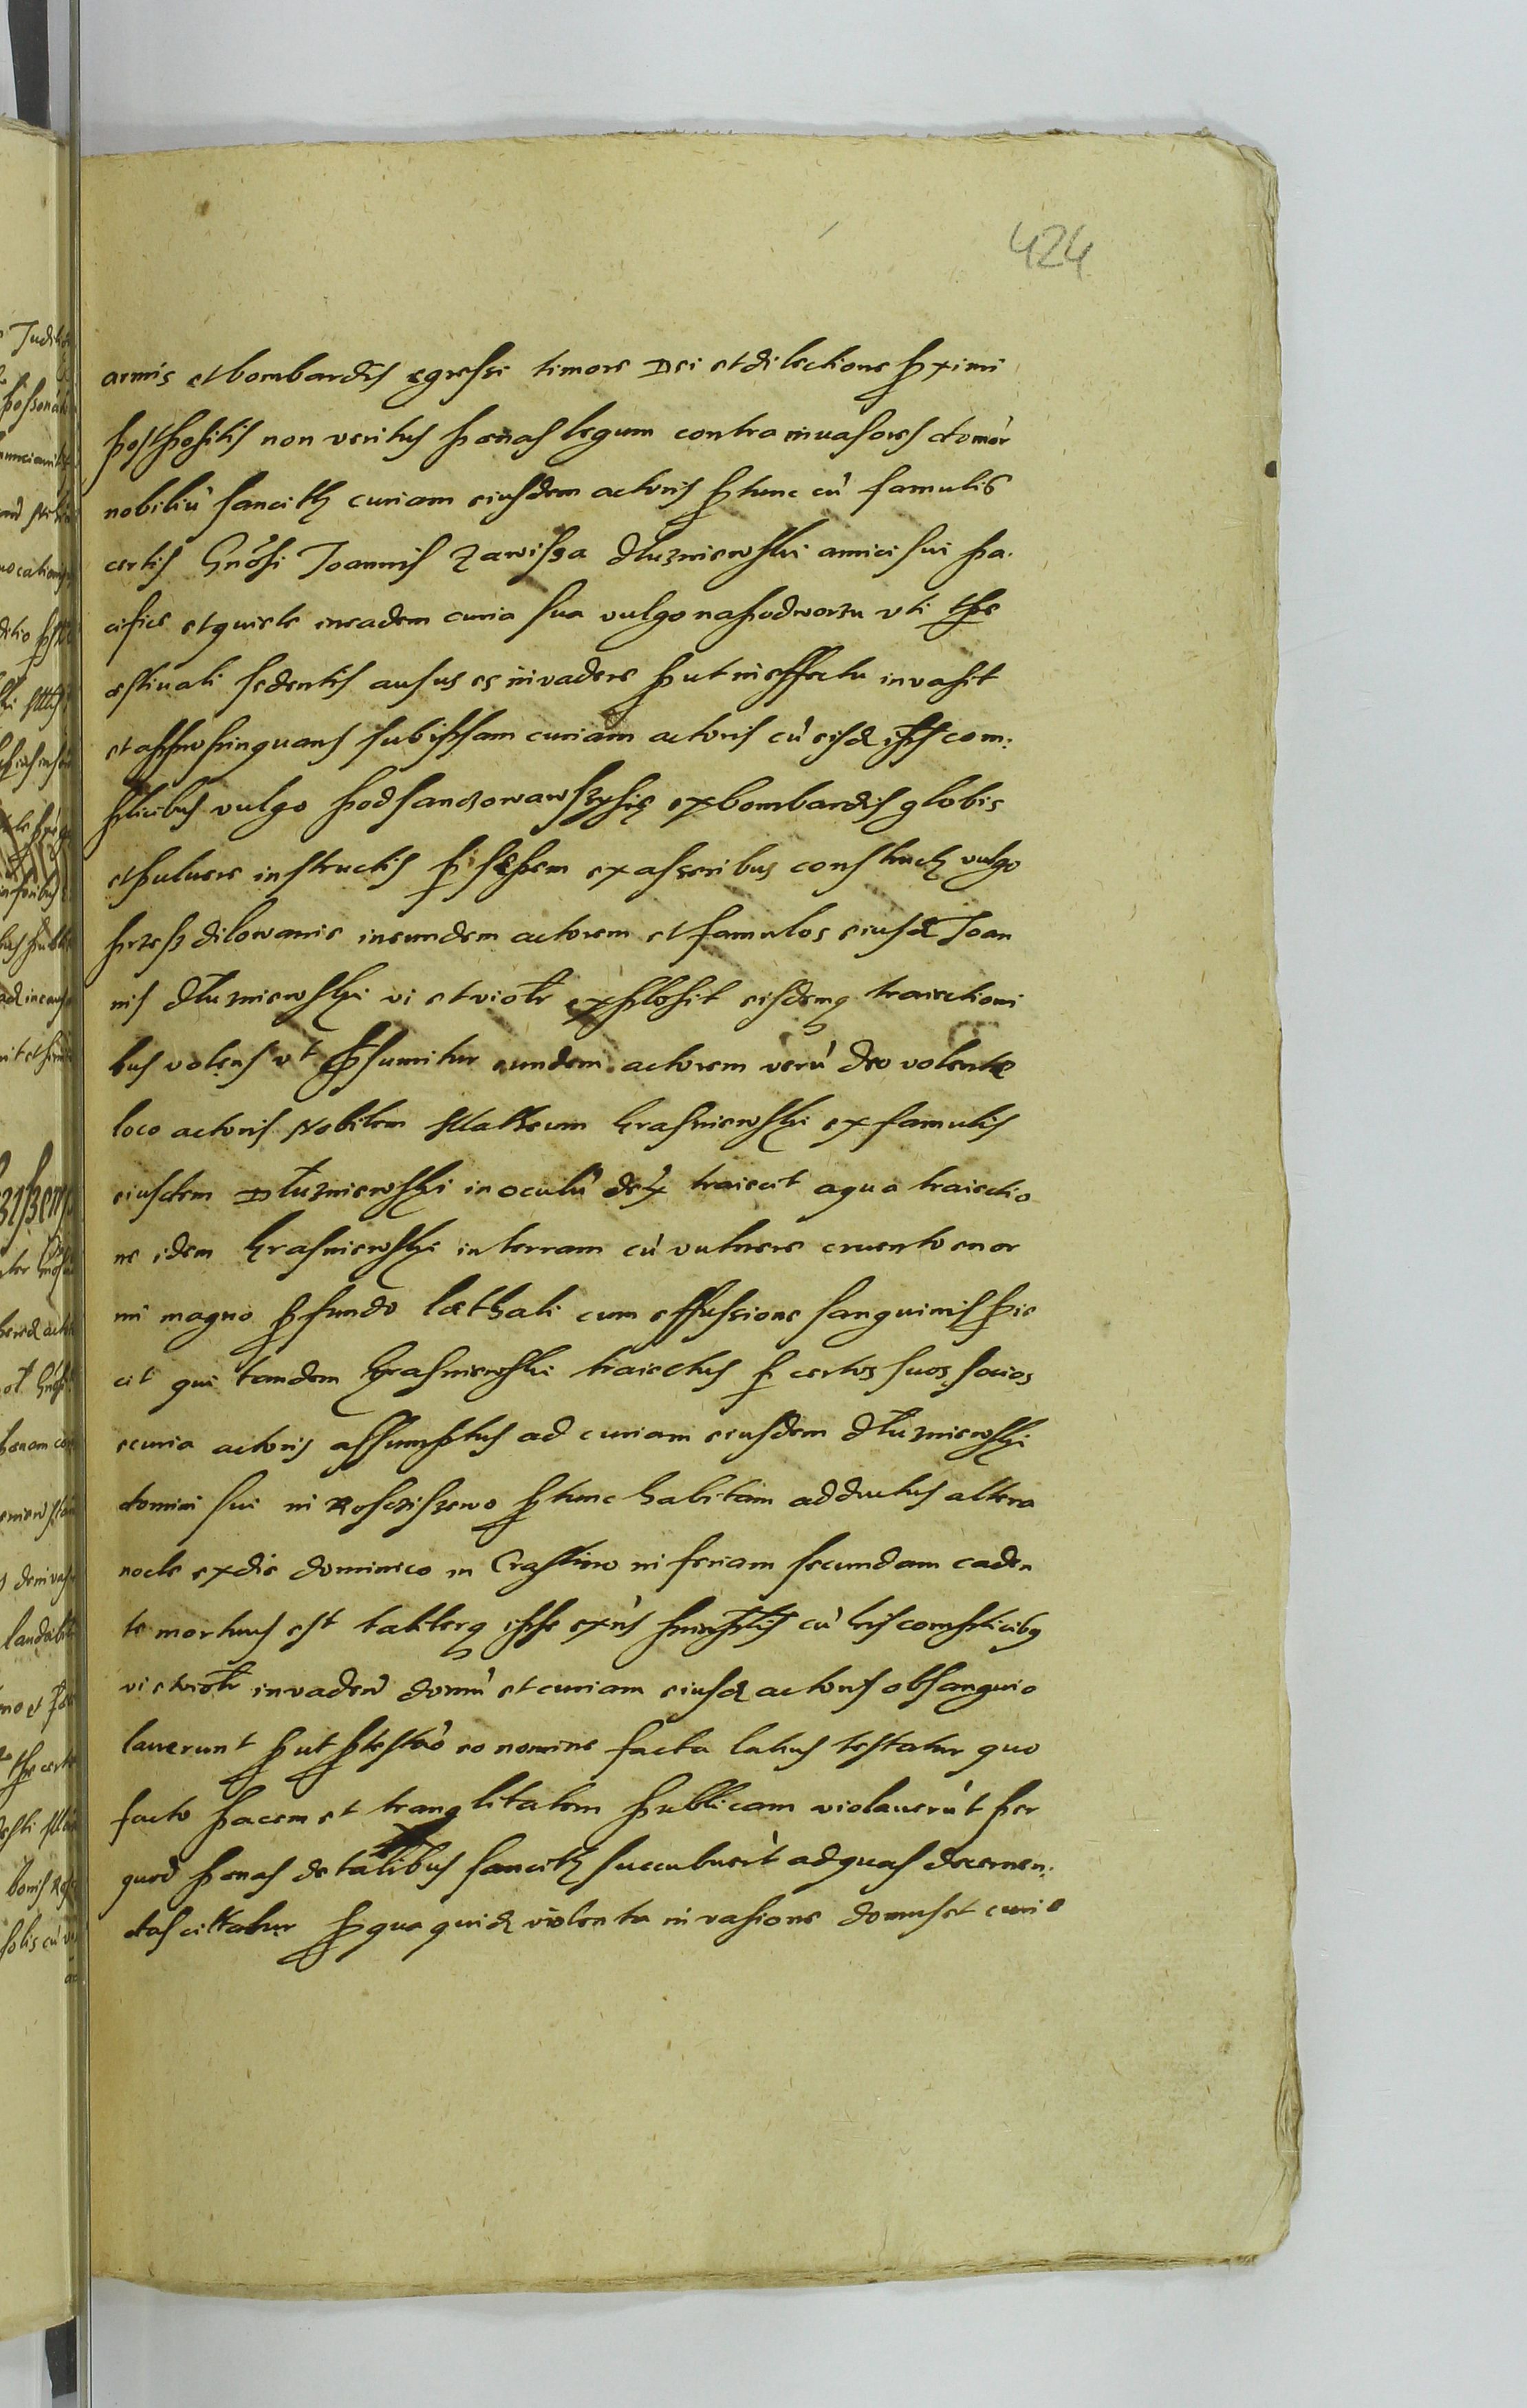 424
armis et bombardis egressi timore Dei et dilectione pximi
postpositis non veritus pœnas legum contra invasores domor
nobiliũ sancitas curiam eiusdem actoris ptunc cũ famulis
certis Gnosi Joannis Zawissa Dłuzniewski amici sui pa.
cifice et quiete in eadem curia sua vulgo na podworzu uti tpe
æstivali sedentis ausus es invadere put in effectu invasit
et appropinquans sub ipsam curiam actoris cũ eisd ipsis com:
plicibus vulgo podsanczowawszysię ex bombardis globis
et pulvere instructis p sepem ex asseribus constructa vulgo
przesz dilowanie in eundem actorem et famulos eiusd Joan
nis Dłuzniewski vi et violtr explosit eisdemq traiectioni
bus volens ut psumitur eundem actorem verũ deo volente
loco actoris Nobilem Mattheum Krasniewski ex famulis
eiusdem Dłuzniewski in oculũ dex traiecit a qua traiectio
ne idem Krasniewski in terram cũ vulnere cruento enor
mi magno pfundo læthali cum effusione sanguinis pie
cit qui tandem Krasniewski traiectus p certos suos socios
e curia actoris assumptus ad curiam eiusdem Dłuzniewski
domini sui in Rosciszewo ptunc habitam adductus altera
nocte ex die dominico in Crastino in feriam secundam caden
te mortuus est taliterq ipse exns principlis cũ his complicibus
vi et violtr invaden domũ et curiam eiusd actoris obsanguio
laverunt put ptestao eo nomine facta latius testatur quo
facto pacem et tranqlitatem publicam violaverũt per
quod pœnas de talibus sancitas succubuerũt ad quas decernen:
das cittatur p qua quid violenta invasione domus et curiæ